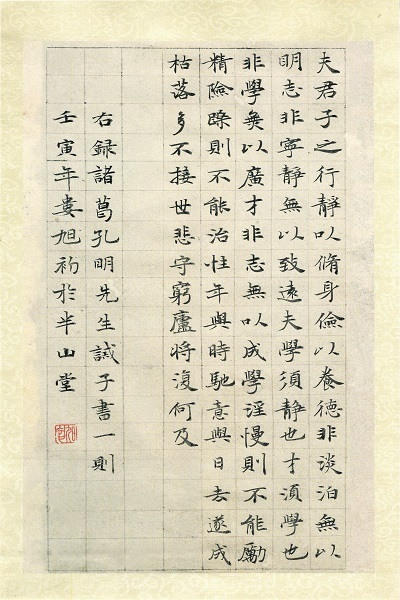 夫君子之行靜以脩身儉以養德非淡泊無以
明志非寧靜無以致遠夫學須静也才須學也
非學無以廣才非志無以成學淫慢則不能勵
精險躁則不能治性年與時馳意與日去遂成
枯落多不接世悲守窮廬將復何及
右録諸葛孔明先生誡子書一則
壬寅年婁旭初於半山堂